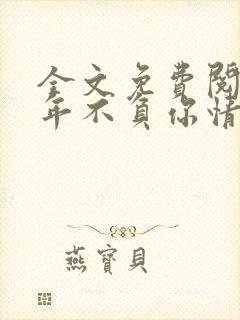 全文免費閱
年不負你情
燕寶貝